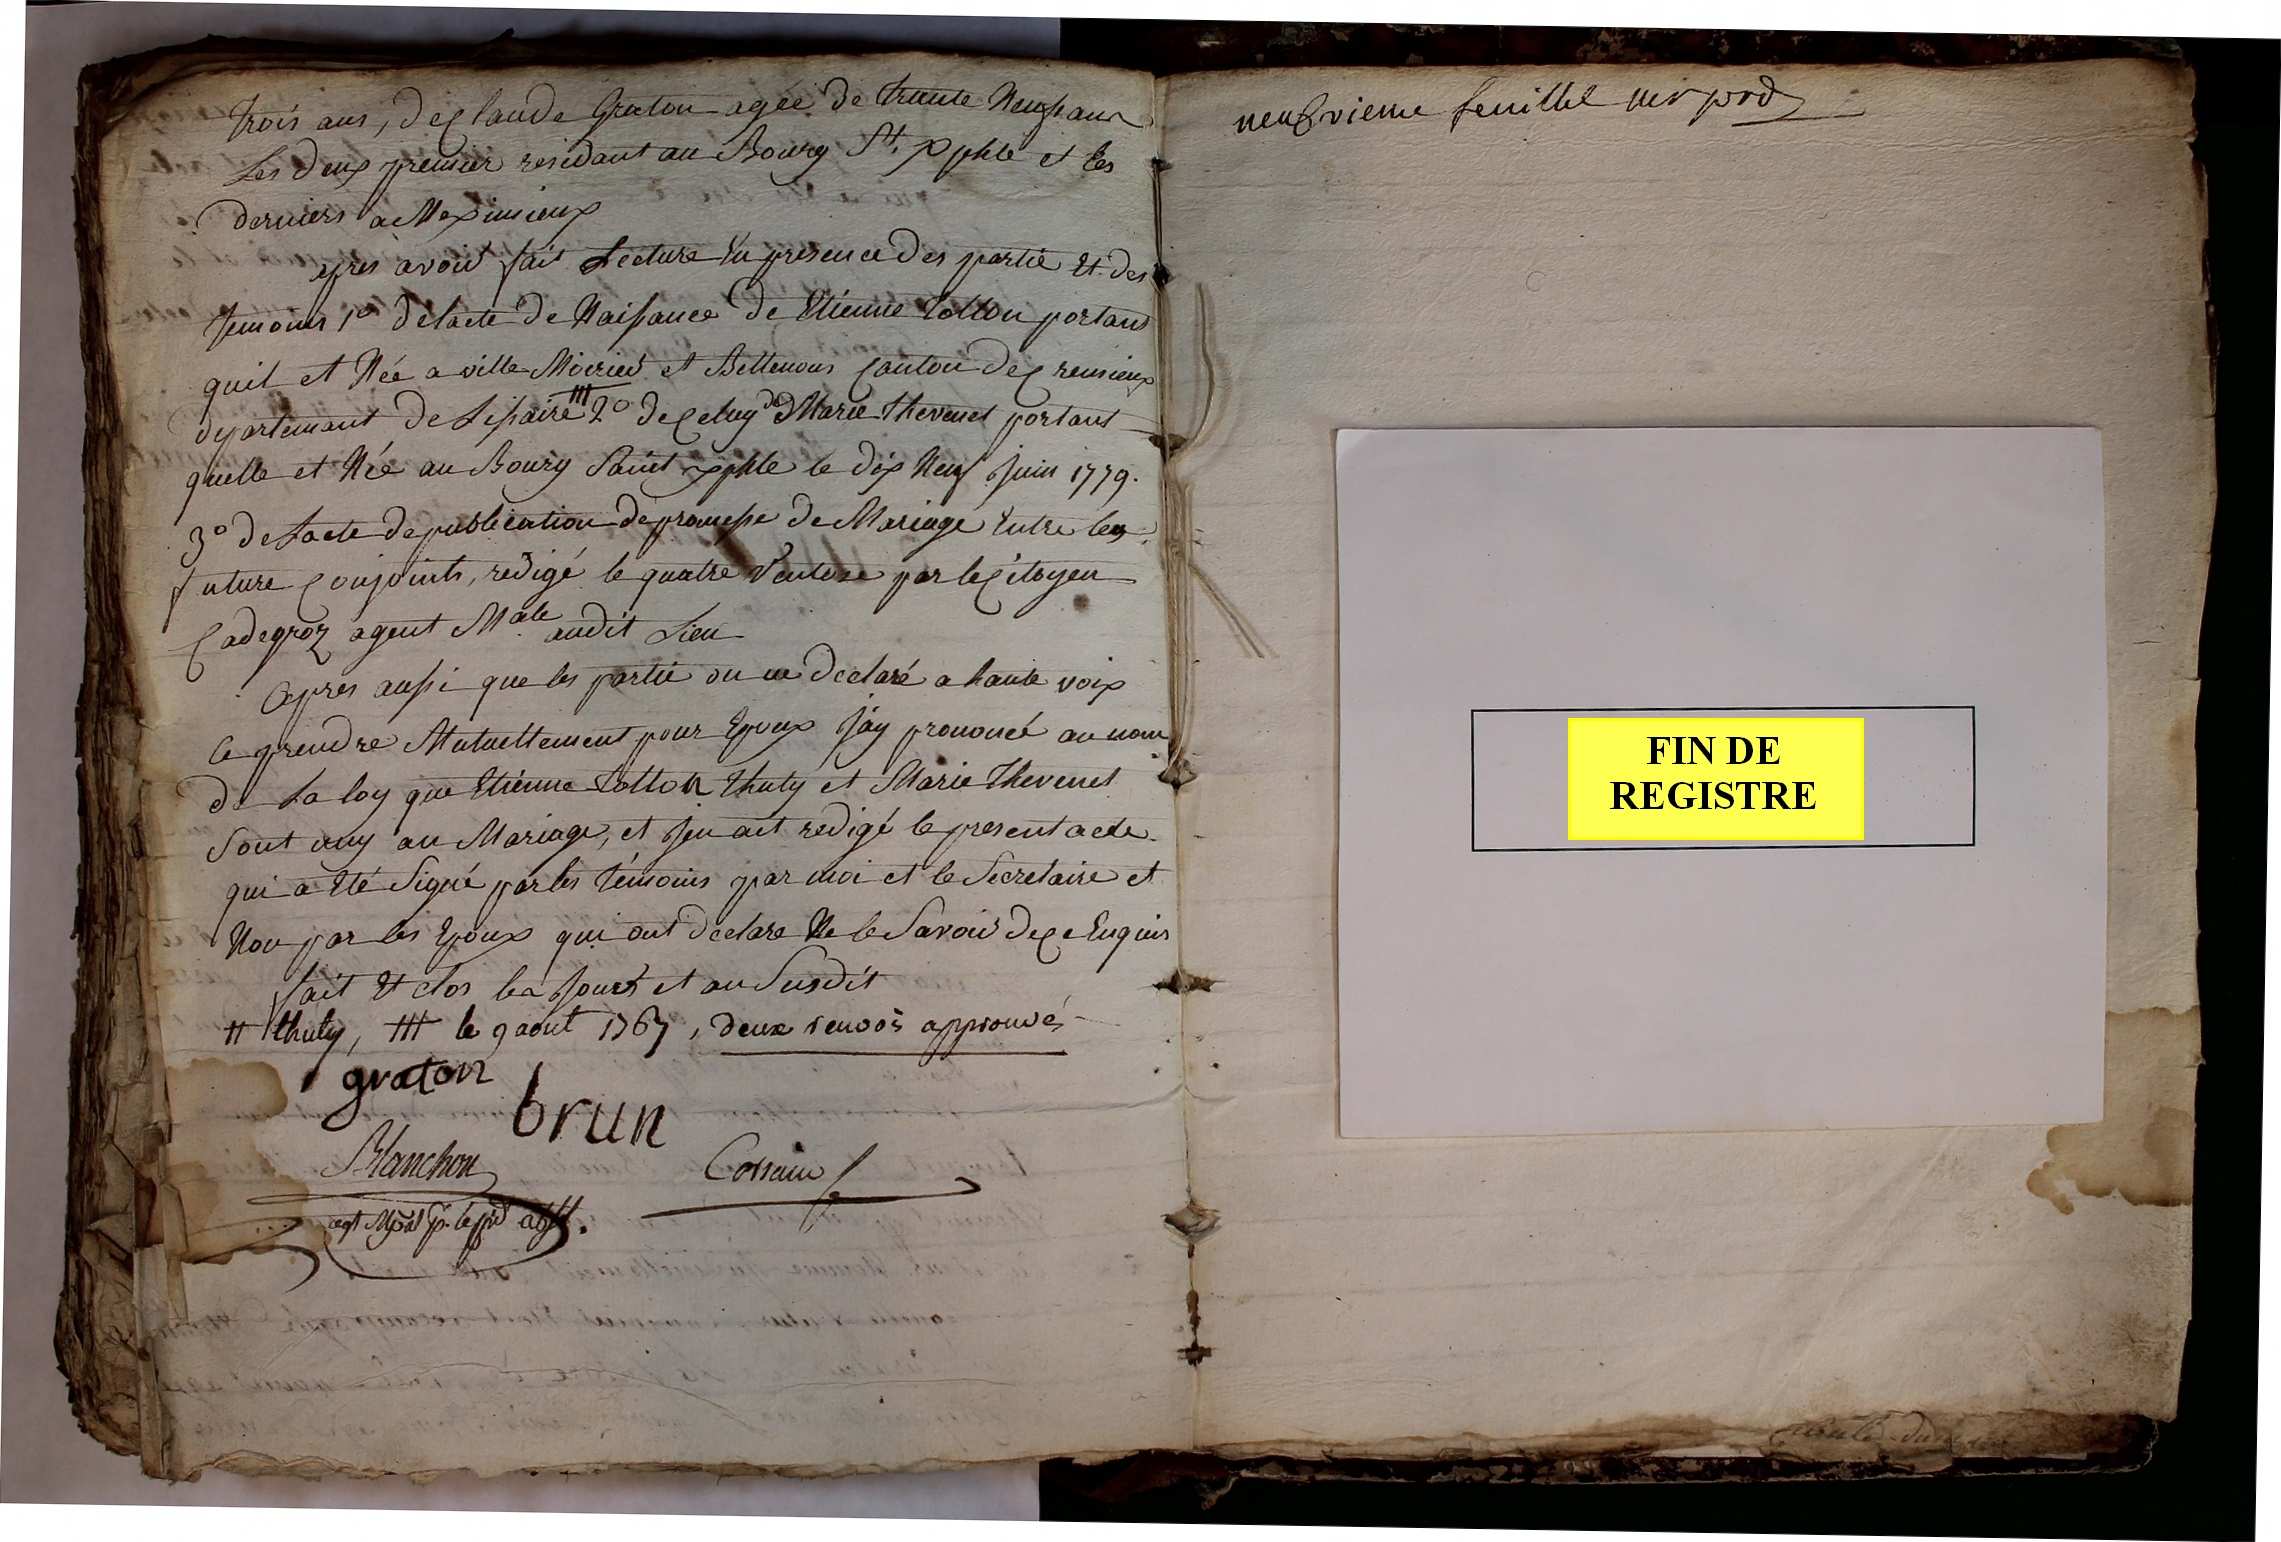 trois ans, de Claude Graton agée de trante Neuf ans
Les deux premier residant au Bourg St. Xpphle et les
derniers a Meximieux
apres avoir fait Lecture En presence des partie Et des
temoins 1° de lacte de Naissance de Etienne Tolton portant
quil et Née a ville Moirieu et Bellenous Canton de Cremieux
departemant de Lisaire ⧻ 2° de Celuy de Marie Thevenet portant
quelle et Née au Bourg Saint Xpphle le dix Neuf Juin 1779.
3° de Lacte de publication de promesse de Mariage Entre les
future Conjoints, redigé le quatre Ventose par le Citoyen
Cadegroz agent Male audit Lieu
Apres aussi que les partie on une declaré a haute voix
ce prendre Mutuellement pour Epoux J'ay prononcé au nom
de La loy que Etienne Tolton Thuly et Marie Thevenet
Sont uny au Mariage, et J'en ait redigé le present acte
qui a Eté Signé par les témoins par moi et le Secretaire et
Non par les Epoux qui ont declare Ne le Savoir de ce Enquis
fait Et clos les Jours et an Susdit
⧺ thuly, ⧻ le 9 aout 1767, deux renvois approuvés
graton
brun
Blanchon
Cossain
agt Mpal
neufvieme feuillet
FIN DE
REGISTRE